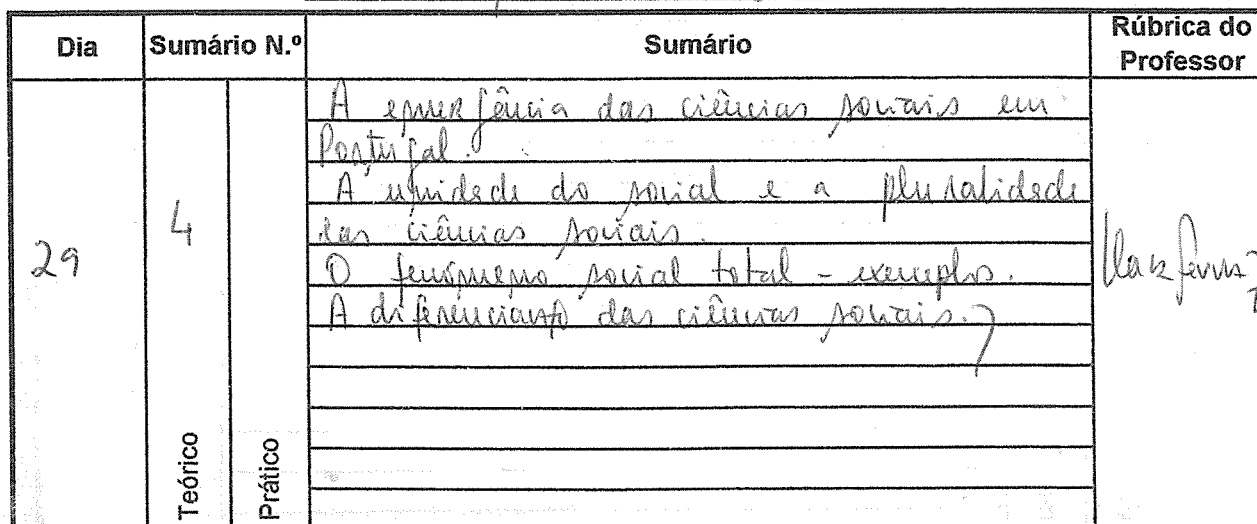 Dia Sumário N.º Sumário Rúbrica do Professor
A emergência das ciências sociais em
Portugal.
A unidade do social e a pluralidade
das ciências sociais.
29 4
O fenómeno social total - exemplos.
A diferenciação das ciências sociais.
Teórico Prático